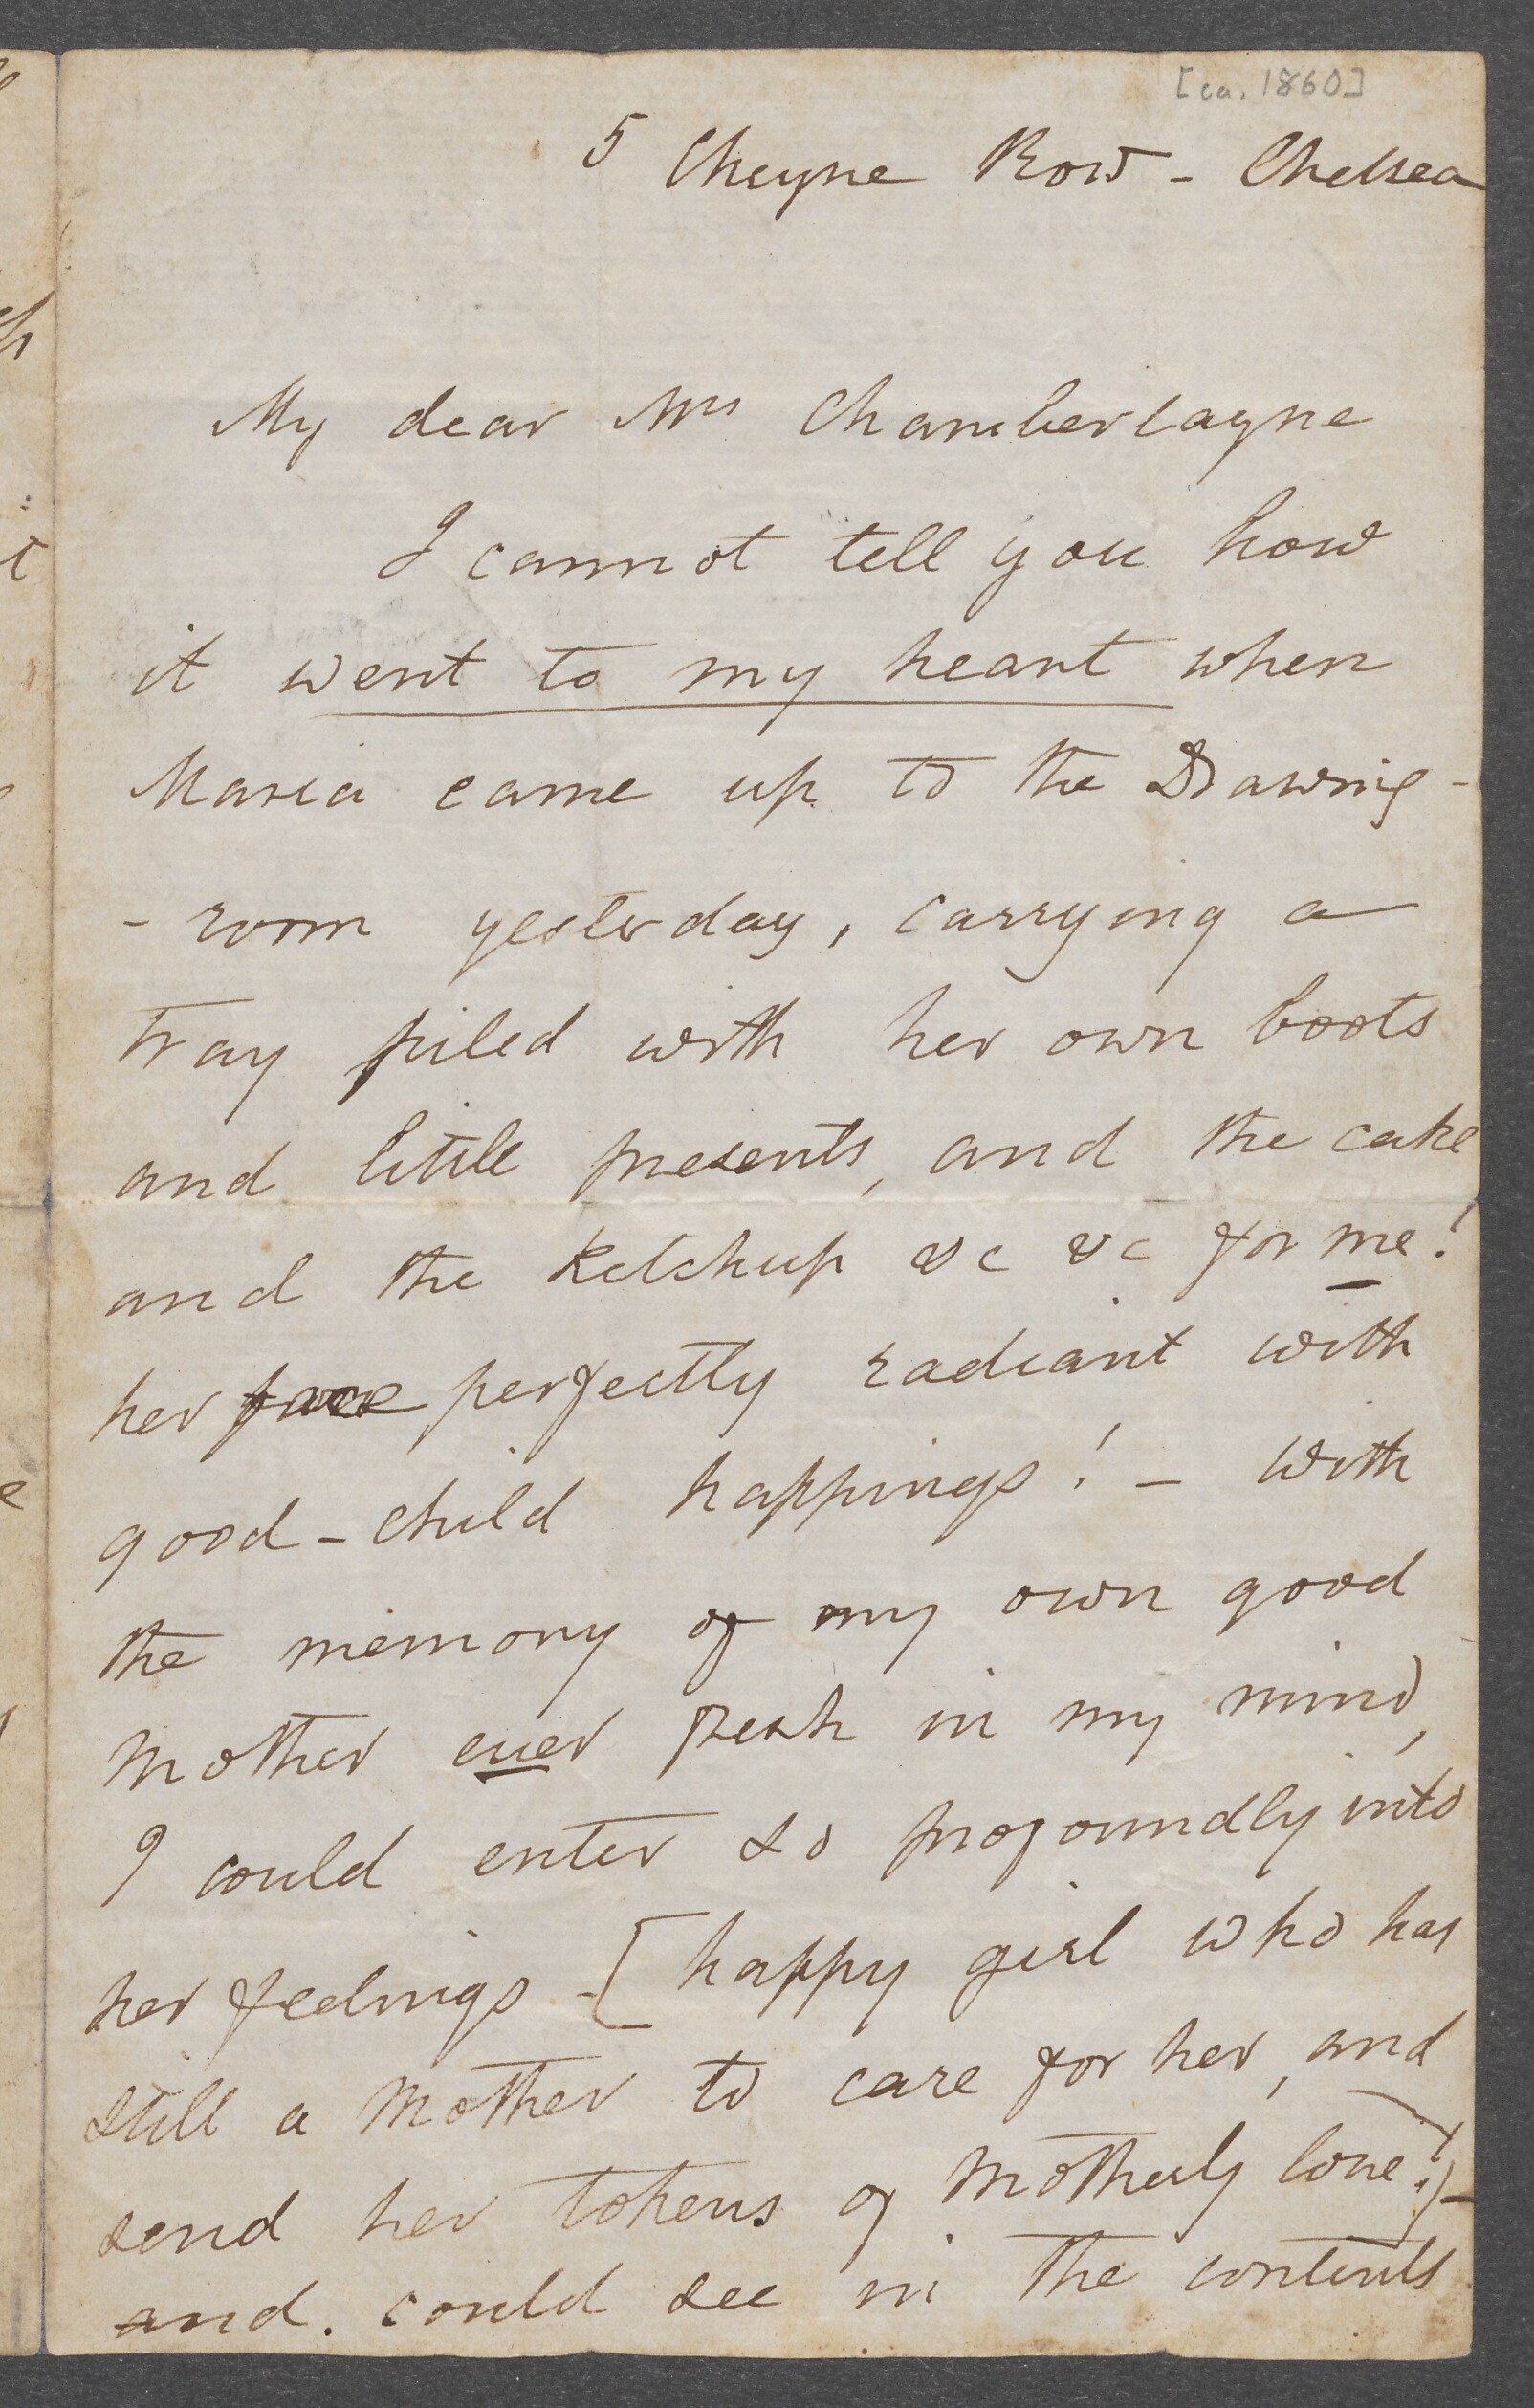 [ca. 1860]
5 Cheyne Row - Chelsea
My dear Mrs Chamberlayne
I cannot tell you how
it went to my heart when
Maria came up to the Drawing-
-room yesterday, carrying a
tray piled with her own boots
and little presents, and the cake
and the Ketchup &c &c for me!
her face perfectly radiant with
good-child happiness! - With
the memory of my own good
Mother ever fresh in my mind,
I could enter so profoundly into
her feelings - [happy girl who has
still a Mother to care for her, and
send her tokens of Motherly love!) -
and could see in the contents